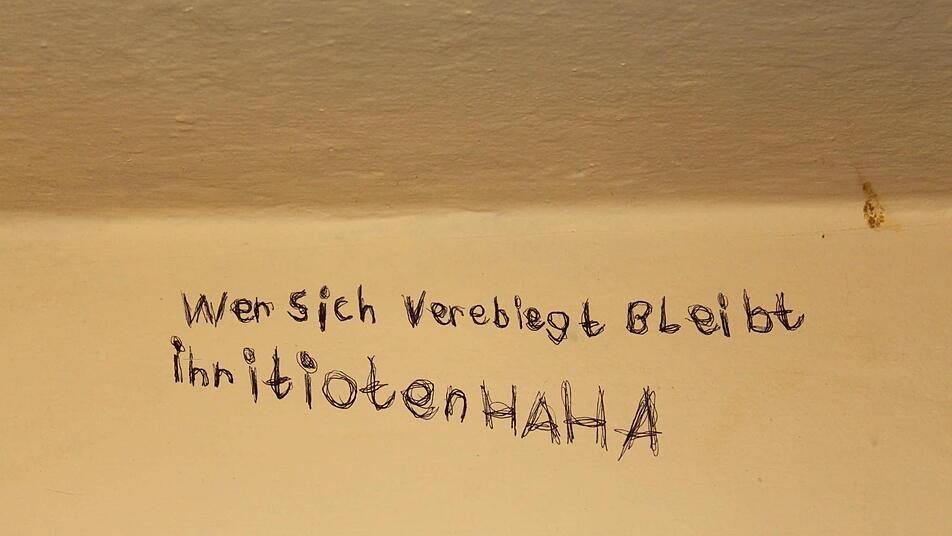 Wer Sich Verebiegt Bleibt
ihr itioten HAHA